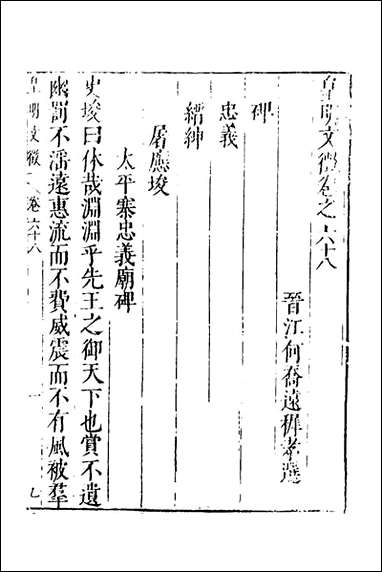 皇明文徵卷之六十八
晉江何喬遠穉孝選
碑
忠義
縉紳
屠應埈
太平寨忠義廟碑
史埈曰休哉淵淵乎先王之御天下也賞不遺
幽罰不濡遠惠流而不費威震而不有風被羣
皇明文徵 卷六十八 一